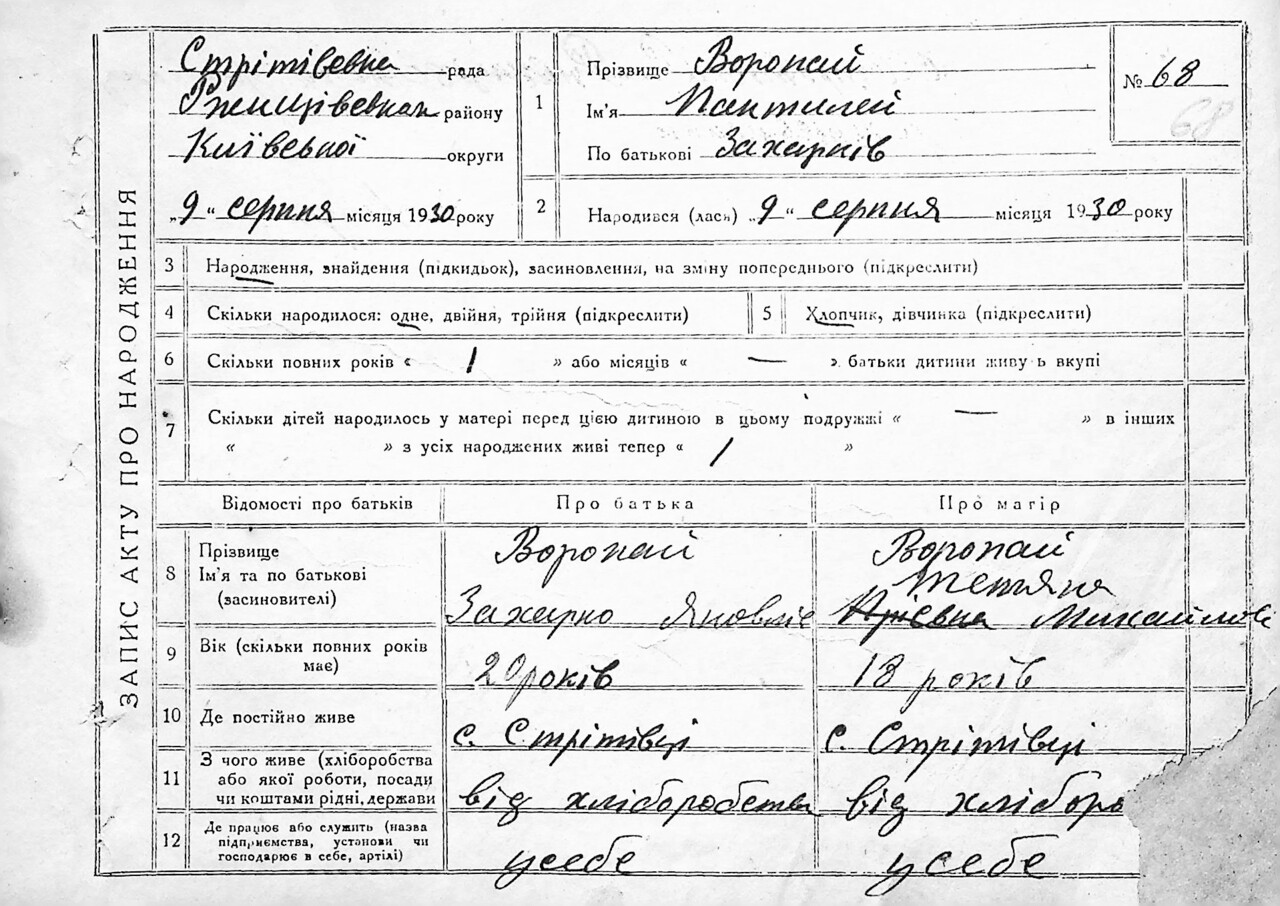 ЗАПИС АКТУ ПРО НАРОДЖЕННЯ
Стрітівська рада
Ржищівський району
Київської округи
„9“ серпня місяця 1930 року
1 Прізвище Воропай
Ім'я Пантилей
По батькові Захарків
№ 68
68
2 Народився (лась) „9“ серпня місяця 1930 року
3 Народження, знайдення (підкидьок), засиновлення, на зміну попереднього (підкреслити)
4 Скільки народилося: одне, двійня, трійня (підкреслити) 5 Хлопчик, дівчинка (підкреслити)
6 Скільки повних років « 1 » або місяців « — » батьки дитини живу ь вкупі
7 Скільки дітей народилось у матері перед цією дитиною в цьому подружжі « — » в інших
« » з усіх народжених живі тепер « 1 »
Відомості про батьків Про батька Про матір
8 Прізвище Воропай Воропай
Ім'я та по батькові Тетяна
(засиновителі) Захарко Яковлів Михайлов
9 Вік (скільки повних років має) 20 років 18 років
10 Де постійно живе с. Стрітівці с. Стрітівці
11 З чого живе (хліборобства
або якої роботи, посади
чи коштами рідні, держави від хліборобства від хліборо
12 Де працює або служить (назва
підприємства, установи чи
господарює в себе, артілі) усебе усебе